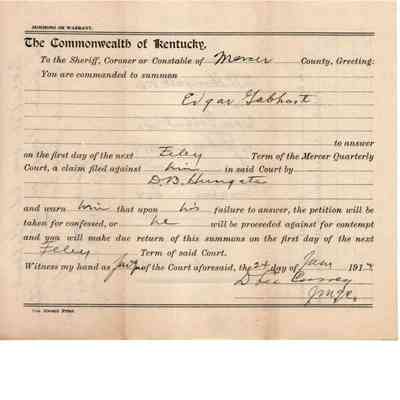 SUMMONS OR WARRANT.
The Commonwealth of Kentucky,
To the Sheriff, Coroner or Constable of Mercer County, Greeting:
You are commanded to summon
Edgar Gabhart
to answer
on the first day of the next Feby Term of the Mercer Quarterly
Court, a claim filed against him in said Court by
D.B. Hungate
and warn him that upon his failure to answer, the petition will be
taken for confessed, or he will be proceeded against for contempt
and you will make due return of this summons on the first day of the next
Feby Term of said Court.
Witness my hand as Judge of the Court aforesaid, the 24 day of Jany 191